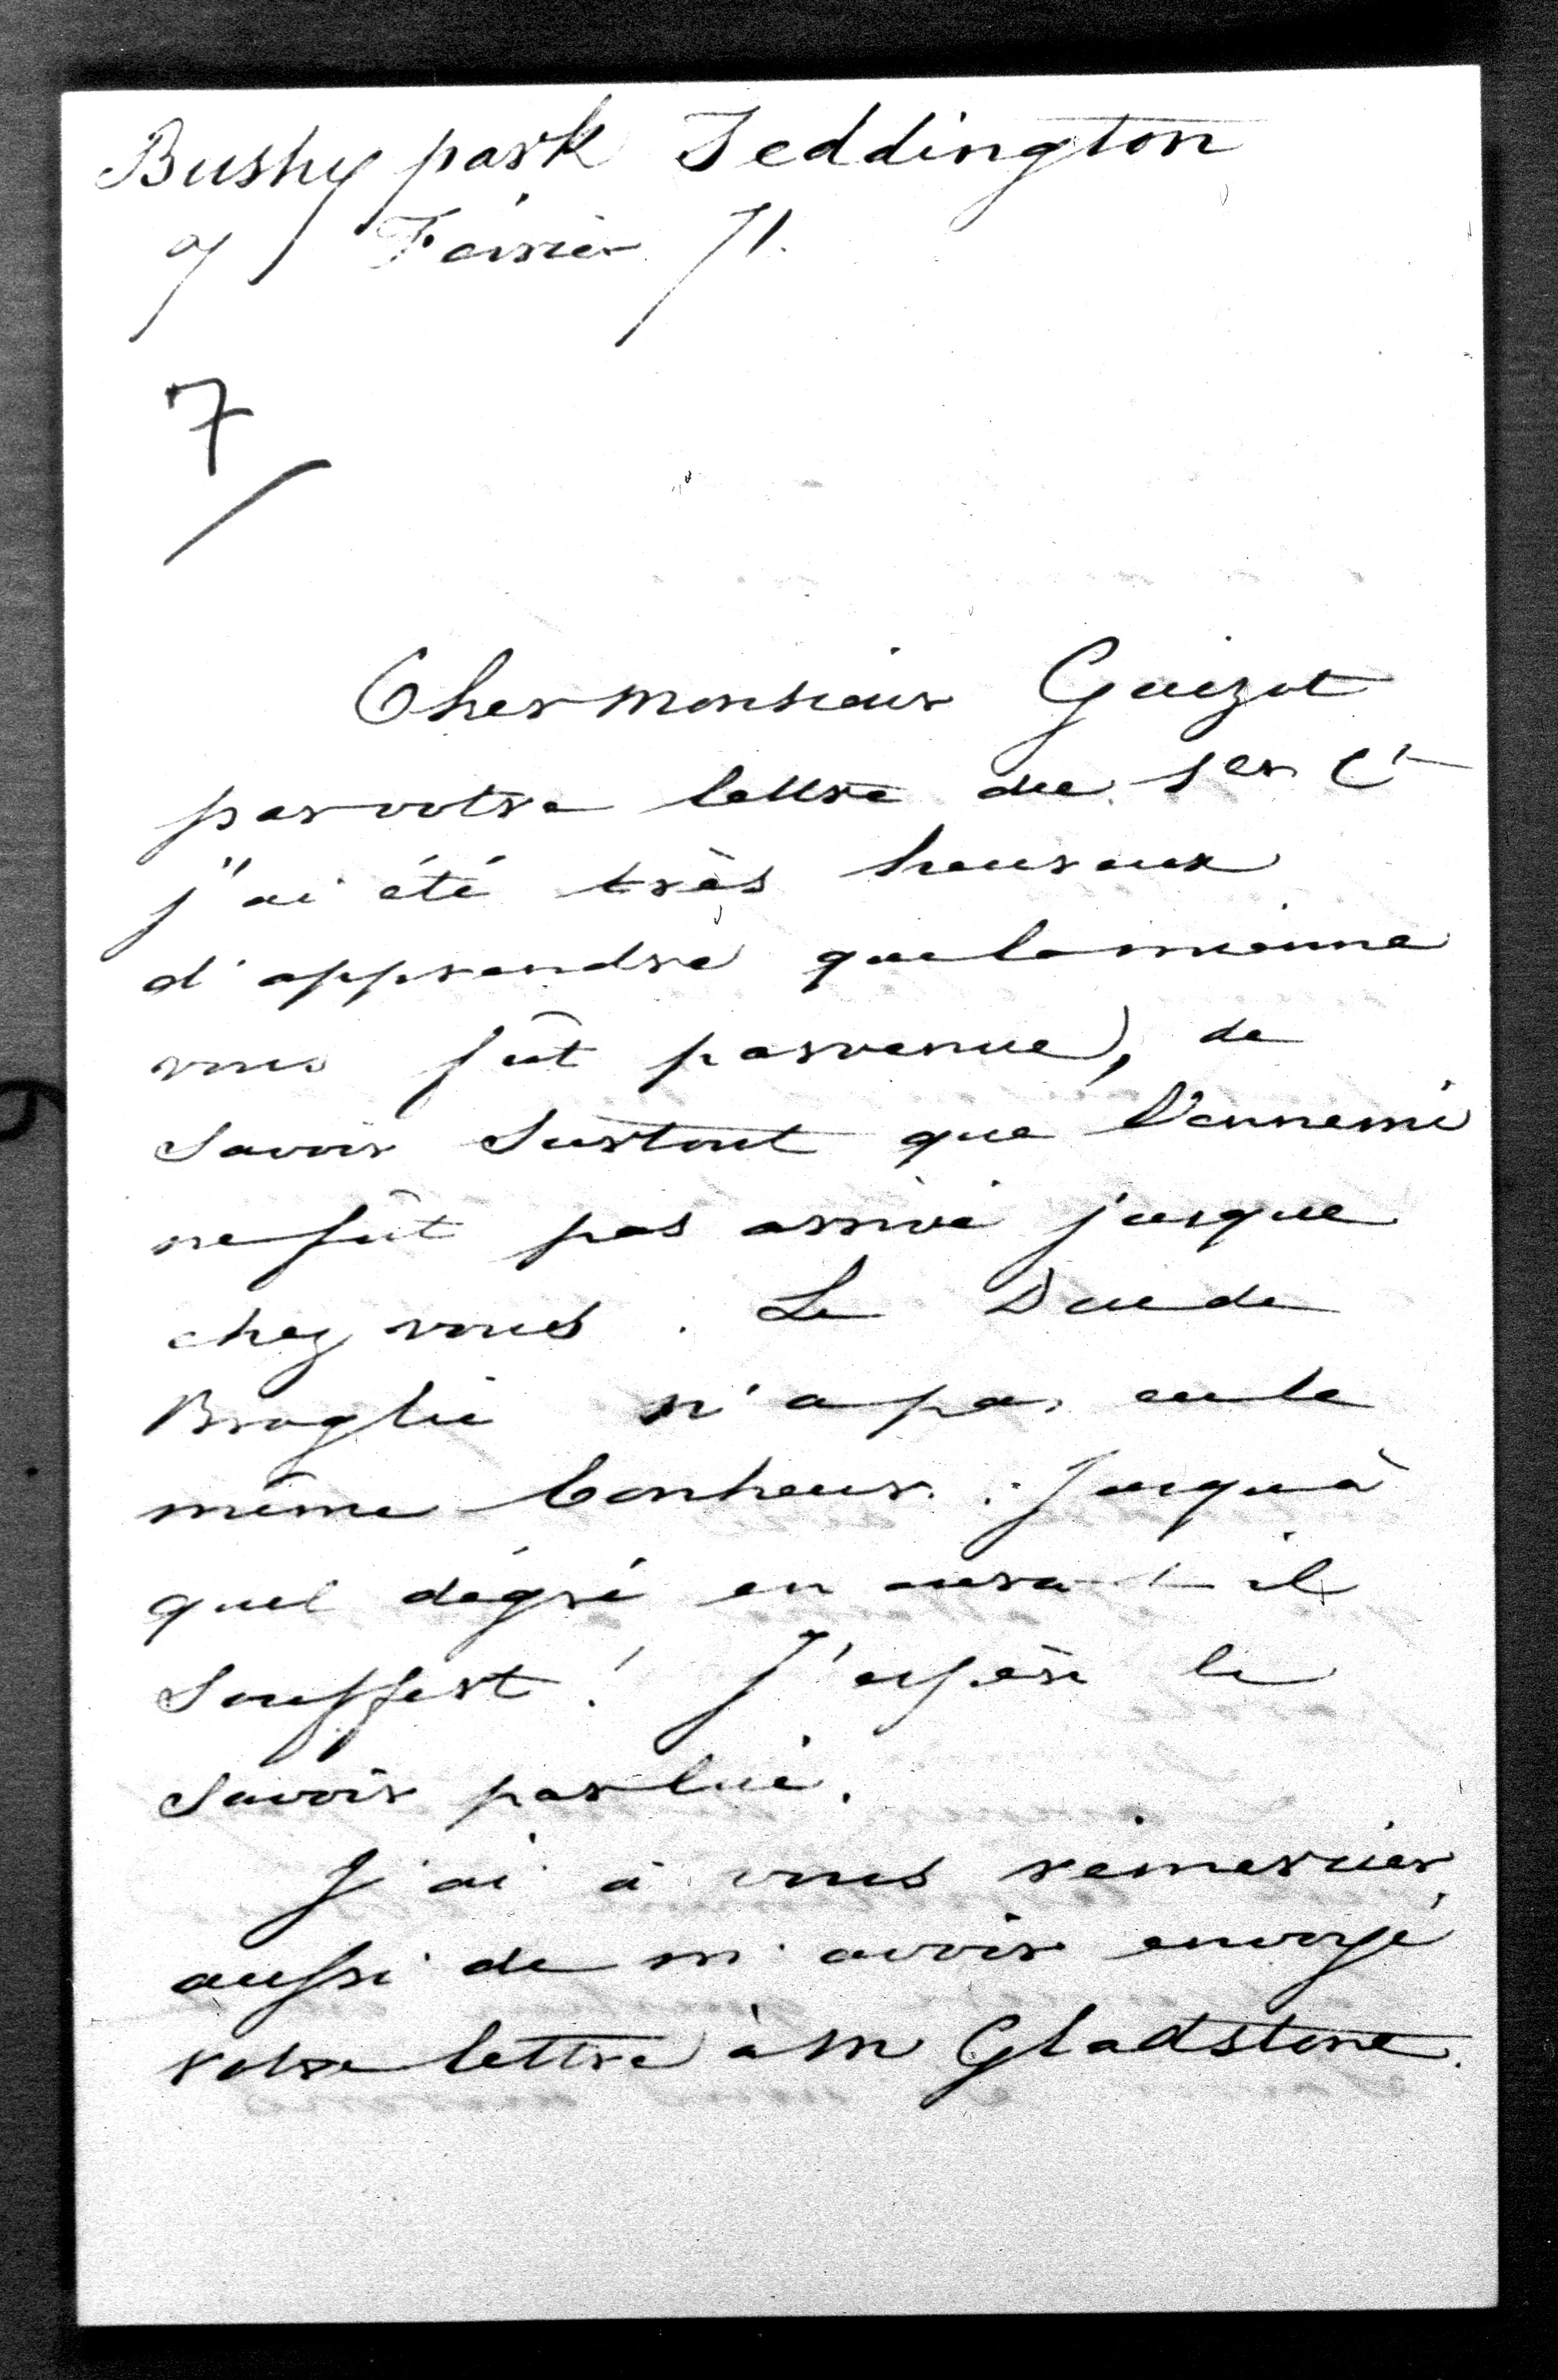 Bushy park Teddington
9 Février 71.
7
Cher monsieur Guizot
par votre lettre du 1er Ct
j'ai été très heureux
d'apprendre que la mienne
vous fût parvenue, de
savoir surtout que l'ennemi
ne fût pas arrivé jusque
chez vous. Le Duc de
Broglie n'a pas eu le
même bonheur. Jusqu'à
quel dégré en aura-t-il
souffert! J'espère le
savoir par lui.
J'ai à vous rémercier
aussi de m'avoir envoyé
votre lettre à M Gladstone.